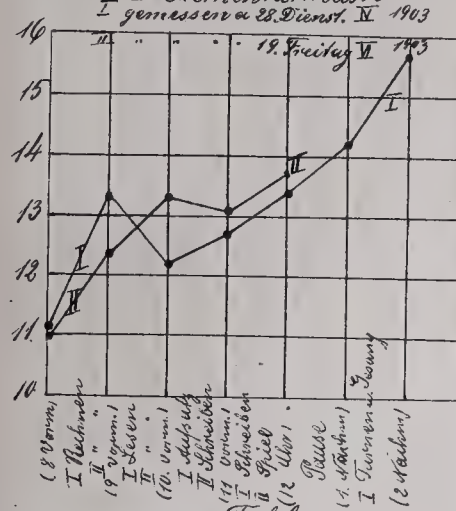 gemessen a 28. Dienst. IV 1903
II " " " 19. Freitag VI 1903
16
15
14
13
12
11
10
I
II
I
II
(8 Vorm.)
I Rechnen
II "
(9 Vorm.)
I Lesen
II "
(10 Vorm.)
I Aufsatz
II Schreiben
(11 Vorm.)
I Schreiben
II Spiel
(12 Uhr)
Pause
(1 Nachm.)
I Turnen u. Gesang
(2 Nachm.)